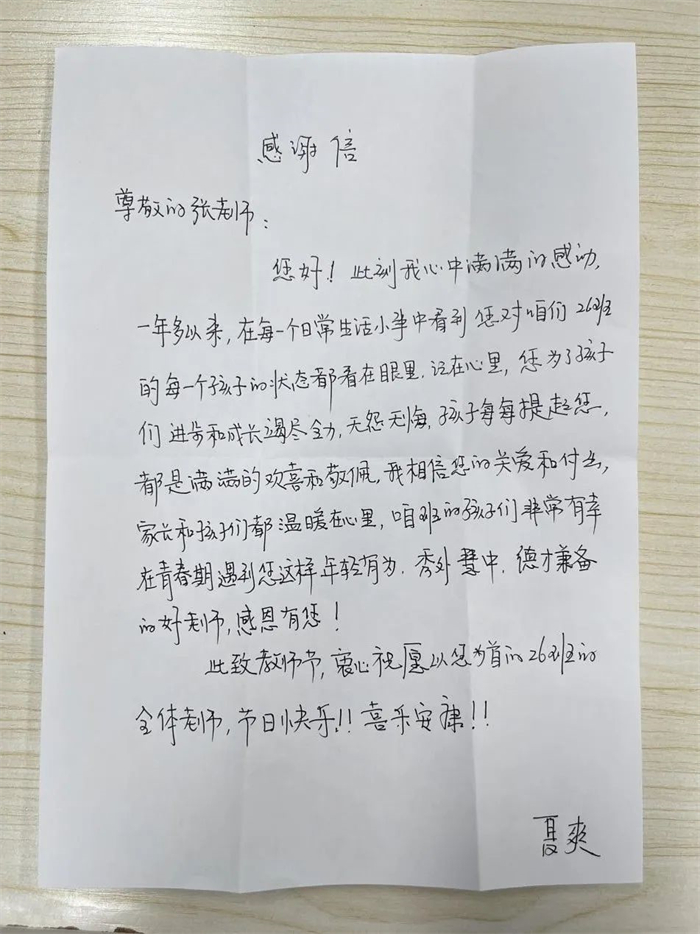 感谢信
尊敬的张老师：
您好！此刻我心中满满的感动，
一年多以来，在每一个日常生活小事中看到您对咱们26班
的每一个孩子的状态都看在眼里.记在心里，您为了孩子
们进步和成长竭尽全力，无怨无悔，孩子每每提起您，
都是满满的欢喜和敬佩，我相信您的关爱和付出，
家长和孩子们都温暖在心里，咱班的孩子们非常有幸
在青春期遇到您这样年轻有为.秀外慧中.德才兼备
的好老师，感恩有您！
此致教师节，衷心祝愿以您为首的26班的
全体老师，节日快乐!!喜乐安康!!
夏爽